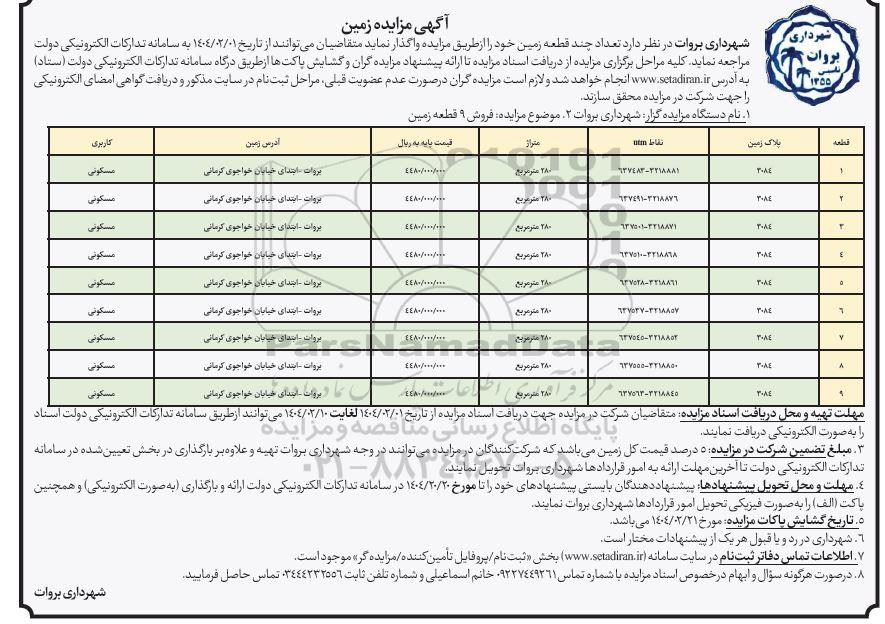 شهرداری
بروات
تاسیس
۱۳۵۵
آگهی مزایده زمین
شهرداری بروات در نظر دارد تعداد چند قطعه زمین خود را ازطریق مزایده واگذار نماید متقاضیان می‌توانند از تاریخ ۱۴۰۴/۰۲/۰۱ به سامانه تدارکات الکترونیکی دولت
مراجعه نماید. کلیه مراحل برگزاری مزایده از دریافت اسناد مزایده تا ارائه پیشنهاد مزایده گران و گشایش پاکت‌ها ازطریق درگاه سامانه تدارکات الکترونیکی دولت (ستاد)
به آدرس www.setadiran.ir انجام خواهد شد و لازم است مزایده گران درصورت عدم عضویت قبلی، مراحل ثبت‌نام در سایت مذکور و دریافت گواهی امضای الکترونیکی
را جهت شرکت در مزایده محقق سازند.
۱. نام دستگاه مزایده گزار: شهرداری بروات ۲. موضوع مزایده: فروش ۹ قطعه زمین
قطعه پلاک زمین نقاط utm متراژ قیمت پایه به ریال آدرس زمین کاربری
۱ ۳۰۸۴ ۶۳۷۴۸۳-۳۲۱۸۸۸۱ ۲۸۰ مترمربع ۴۴۸۰/۰۰۰/۰۰۰ بروات -ابتدای خیابان خواجوی کرمانی مسکونی
۲ ۳۰۸۴ ۶۳۷۴۹۱-۳۲۱۸۸۷۶ ۲۸۰ مترمربع ۴۴۸۰/۰۰۰/۰۰۰ بروات -ابتدای خیابان خواجوی کرمانی مسکونی
۳ ۳۰۸۴ ۶۳۷۵۰۱-۳۲۱۸۸۷۱ ۲۸۰ مترمربع ۴۴۸۰/۰۰۰/۰۰۰ بروات -ابتدای خیابان خواجوی کرمانی مسکونی
۴ ۳۰۸۴ ۶۳۷۵۱۰-۳۲۱۸۸۶۸ ۲۸۰ مترمربع ۴۴۸۰/۰۰۰/۰۰۰ بروات -ابتدای خیابان خواجوی کرمانی مسکونی
۵ ۳۰۸۴ ۶۳۷۵۲۸-۳۲۱۸۸۶۱ ۲۸۰ مترمربع ۴۴۸۰/۰۰۰/۰۰۰ بروات -ابتدای خیابان خواجوی کرمانی مسکونی
۶ ۳۰۸۴ ۶۳۷۵۳۷-۳۲۱۸۸۵۷ ۲۸۰ مترمربع ۴۴۸۰/۰۰۰/۰۰۰ بروات -ابتدای خیابان خواجوی کرمانی مسکونی
۷ ۳۰۸۴ ۶۳۷۵۴۵-۳۲۱۸۸۵۲ ۲۸۰ مترمربع ۴۴۸۰/۰۰۰/۰۰۰ بروات -ابتدای خیابان خواجوی کرمانی مسکونی
۸ ۳۰۸۴ ۶۳۷۵۵۵-۳۲۱۸۸۵۰ ۲۸۰ مترمربع ۴۴۸۰/۰۰۰/۰۰۰ بروات -ابتدای خیابان خواجوی کرمانی مسکونی
۹ ۳۰۸۴ ۶۳۷۵۶۳-۳۲۱۸۸۴۵ ۲۸۰ مترمربع ۴۴۸۰/۰۰۰/۰۰۰ بروات -ابتدای خیابان خواجوی کرمانی مسکونی
ParsNamadData
پایگاه اطلاع رسانی مناقصه و مزایده
مهلت تهیه و محل دریافت اسناد مزایده: متقاضیان شرکت در مزایده جهت دریافت اسناد مزایده از تاریخ ۱۴۰۴/۰۲/۰۱ لغایت ۱۴۰۴/۰۲/۱۰ می‌توانند ازطریق سامانه تدارکات الکترونیکی دولت اسناد
را به‌صورت الکترونیکی دریافت نمایند.
۳. مبلغ تضمین شرکت در مزایده: ۵ درصد قیمت کل زمین می‌باشد که شرکت‌کنندگان در مزایده می‌توانند در وجه شهرداری بروات تهیه و علاوه‌بر بارگذاری در بخش تعیین‌شده در سامانه
تدارکات الکترونیکی دولت تا آخرین‌مهلت ارائه به امور قراردادها شهرداری بروات تحویل نمایند.
۴. مهلت و محل تحویل پیشنهادها: پیشنهاددهندگان بایستی پیشنهادهای خود را تا مورخ ۱۴۰۴/۲۰/۲۰ در سامانه تدارکات الکترونیکی دولت ارائه و بارگذاری (به‌صورت الکترونیکی) و همچنین
پاکت (الف) را به‌صورت فیزیکی تحویل امور قراردادها شهرداری بروات نمایند.
۵. تاریخ گشایش پاکات مزایده: مورخ ۱۴۰۴/۰۲/۲۱ می‌باشد.
۶. شهرداری در رد و یا قبول هر یک از پیشنهادات مختار است.
۷. اطلاعات تماس دفاتر ثبت‌نام در سایت سامانه (www.setadiran.ir) بخش «ثبت‌نام/پروفایل تأمین‌کننده/مزایده گر» موجود است.
۸. درصورت هرگونه سؤال و ابهام درخصوص اسناد مزایده با شماره تماس ۰۹۲۲۷۴۴۹۲۶۱ خانم اسماعیلی و شماره تلفن ثابت ۰۳۴۴۴۲۳۲۵۵۶ تماس حاصل فرمایید.
شهرداری بروات